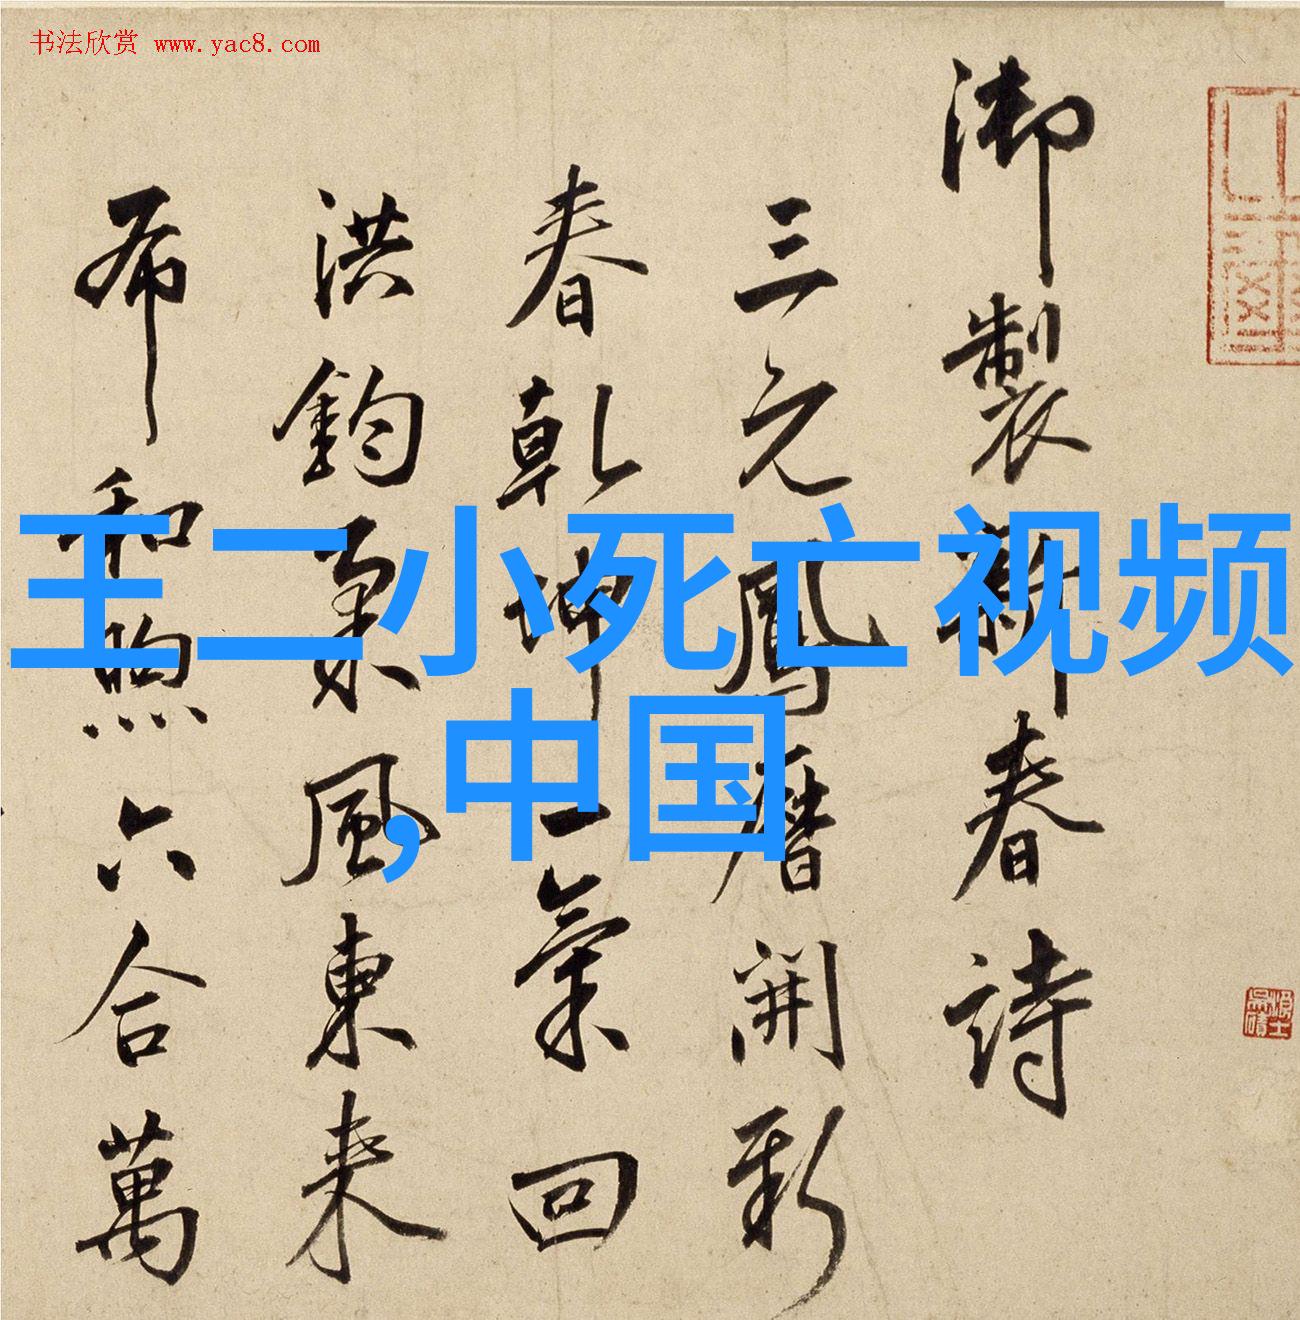 书法欣赏 www.yac8.com
王二小死亡视频
,中国
御製新春詩
三元鳳曆開新
春乾坤一氣回
洪鈞柔風東来
布和煦六合萬